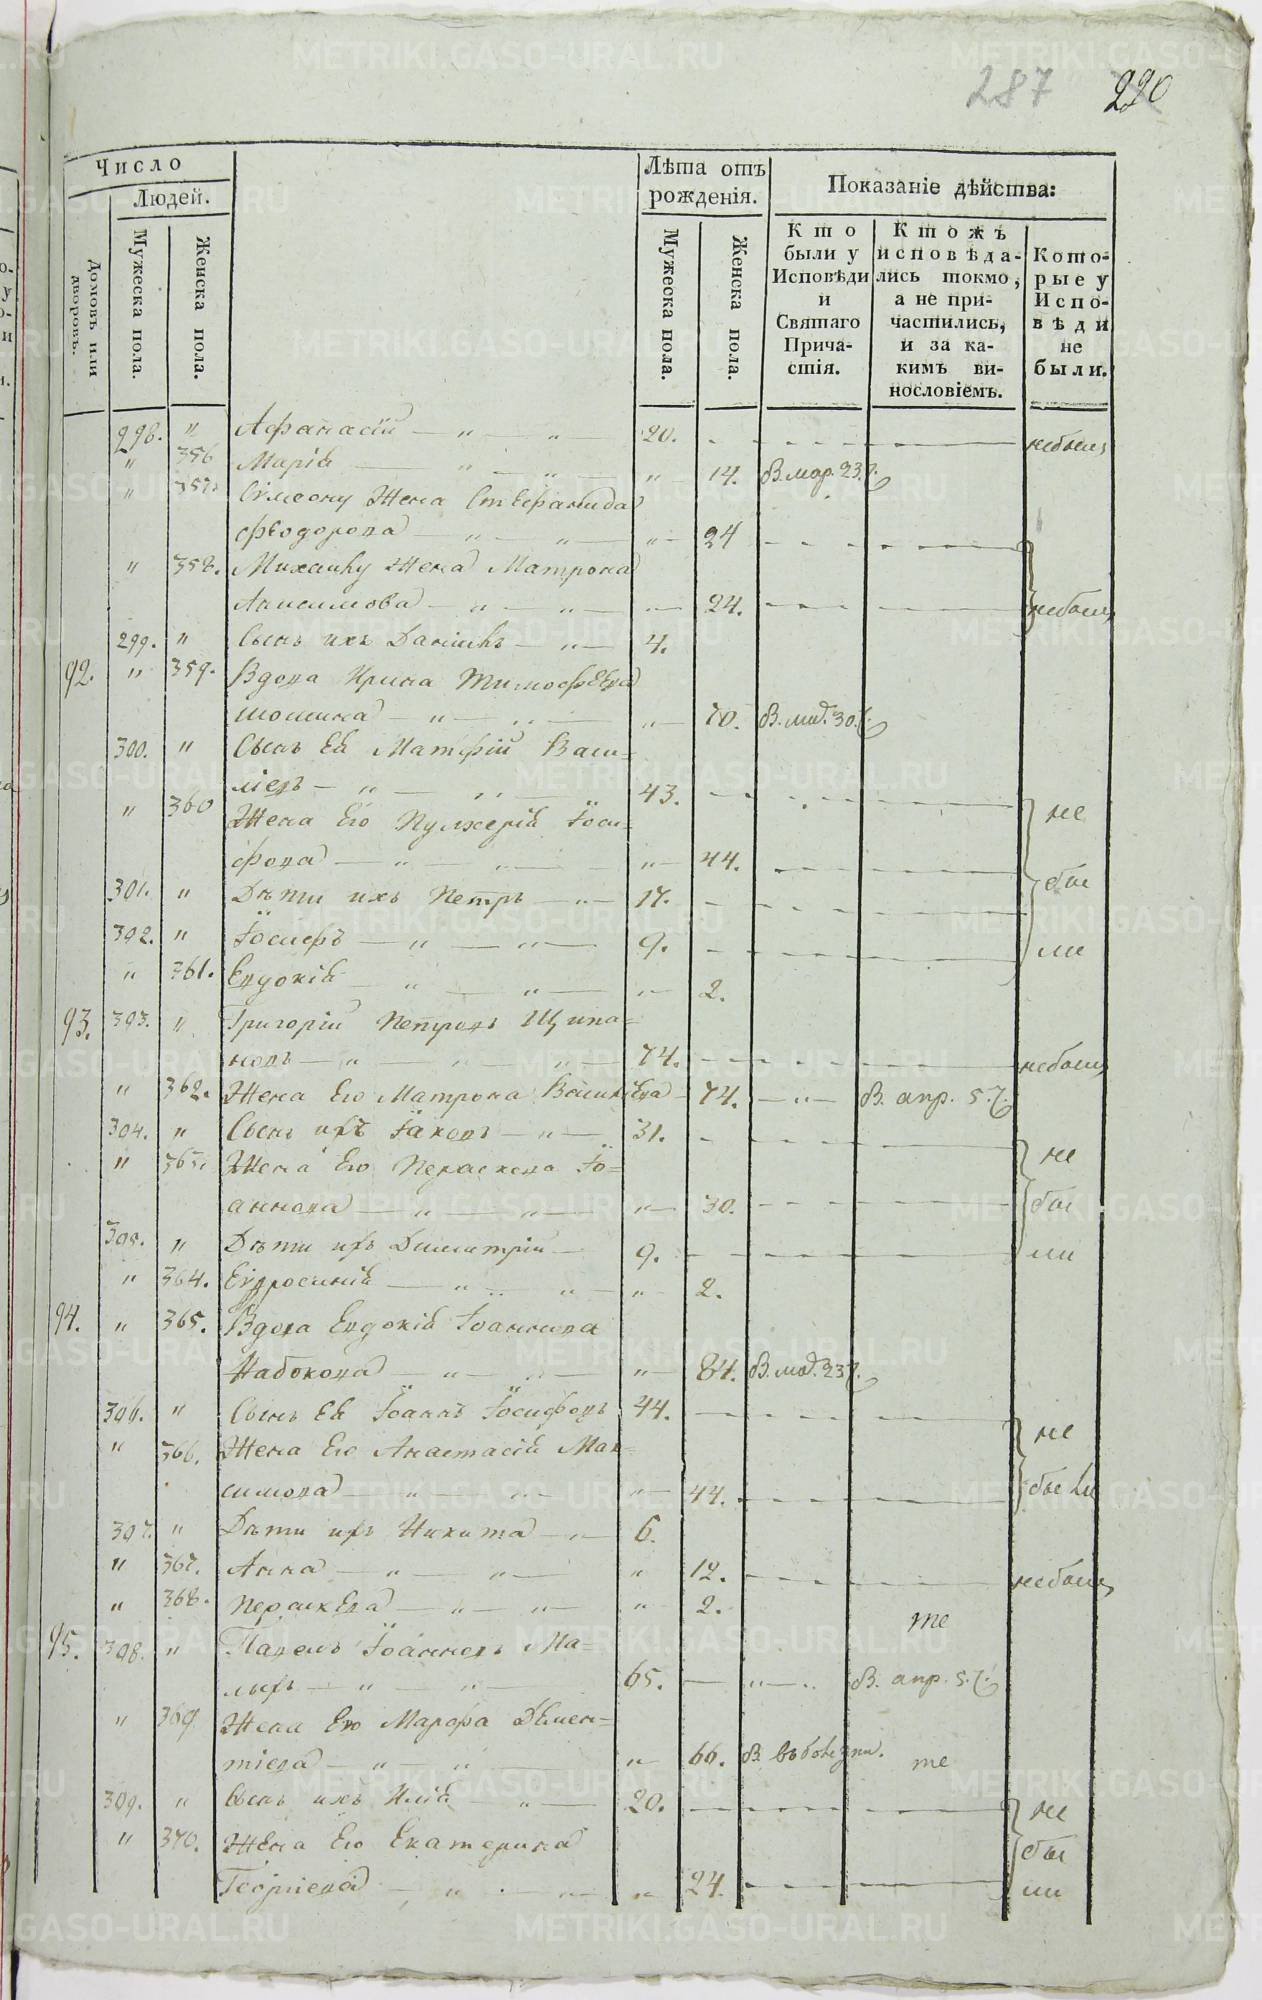 287 220
Число
Людей.
Домовъ или дворовъ.
Мужеска пола.
Женска пола.
Лѣта отъ рожденія.
Мужеска пола.
Женска пола.
Показаніе дѣйства:
Кто были у Исповѣди и Святаго Причастія.
Ктожъ исповѣдались токмо, а не причастились, и за какимъ винословіемъ.
Которые у Исповѣди не были.
298. " Аѳанасій — " — " 20. небыли
" 356 Марія — " — " " 14. В. мар. 23.
" 357. Сѵмеону Жена Стефанида
Ѳеодорова — " — " — " — 24
" 358. Михаилу Жена Матрона
Анисимова — " — " — " — 24. небыли
299. " Сынъ ихъ Даніилъ — " — 4.
92. " 359. Вдова Ирина Тимоѳеева
— " — " — " — 70. 30.
300. " Сынъ Ея Матѳій Васи=
ліевъ — " — " 43. не
" 360 Жена Его Пулхерія Іоси=
фова — " — " — 44. бы
301. " Дѣти ихъ Петръ — " — 17.
302. " Іосифъ — " — " — 9. ли
" 361. Евдокія — " — " — " — 2.
93. 303. " Григорій Петровъ Щипа=
новъ — " — " — " — 74. небыли
" 362. Жена Его Матрона Василіева — 74. — " — В. апр. 5.
304. " Сынъ ихъ Іаковъ — " — 31.
" 363. Жена Его Параскева Іо= не
аннова — " — " — " — 30. бы
305. " Дѣти ихъ Димитрій — 9. ли
" 364. Евфросинія — " — " — " — 2.
94. " 365. Вдова Евдокія Іоаннова
Набокова — " — " — " — 84. 23
306. " Сынъ Ея Іоаннъ Іосифовъ 44. не
" 366. Жена Его Анастасія Мак=
симова — " — " — " — 44. были
307. " Дѣти ихъ Никита — " — 6.
" 367. Анна — " — " — " 12. небыли
" 368. Параскева — " — " — " 2.
95. 308. " Павелъ Іоанновъ Ма= те
лыхъ — " — " — 65. — " — " В. апр. 5.
" 369 Жена Его Марѳа Демен=
тіева — " — " — " — 66. въ болезни. те
309. " Сынъ ихъ Илія — " — 20. не
" 370. Жена Его Екатерина бы
Георгіева — " — " — " 24. ли
METRIKI.GASO-URAL.RU